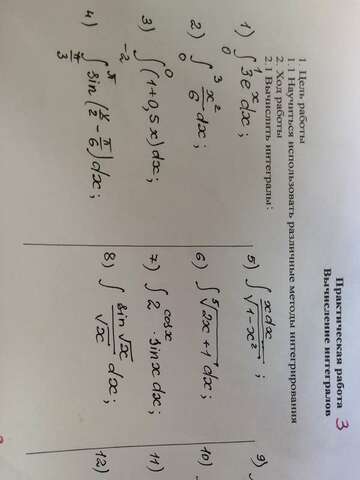 Практическая работа 3
Вычисление интегралов
1. Цель работы
1.1 Научиться использовать различные методы интегрирования
2. Ход работы
2.1 Вычислить интегралы:
1) ∫₀¹ 3eˣ dx;
2) ∫₀³ x²/6 dx;
3) ∫₋₂⁰ (1+0,5x) dx;
4) ∫_{π/3}^{π} sin(x/2 - π/6) dx;
5) ∫ xdx/√(1-x²);
6) ∫ ⁵√(2x+1) dx;
7) ∫ 2^{cosx} · sinx dx;
8) ∫ sin√x/√x dx;
9) ∫
10)
11)
12)